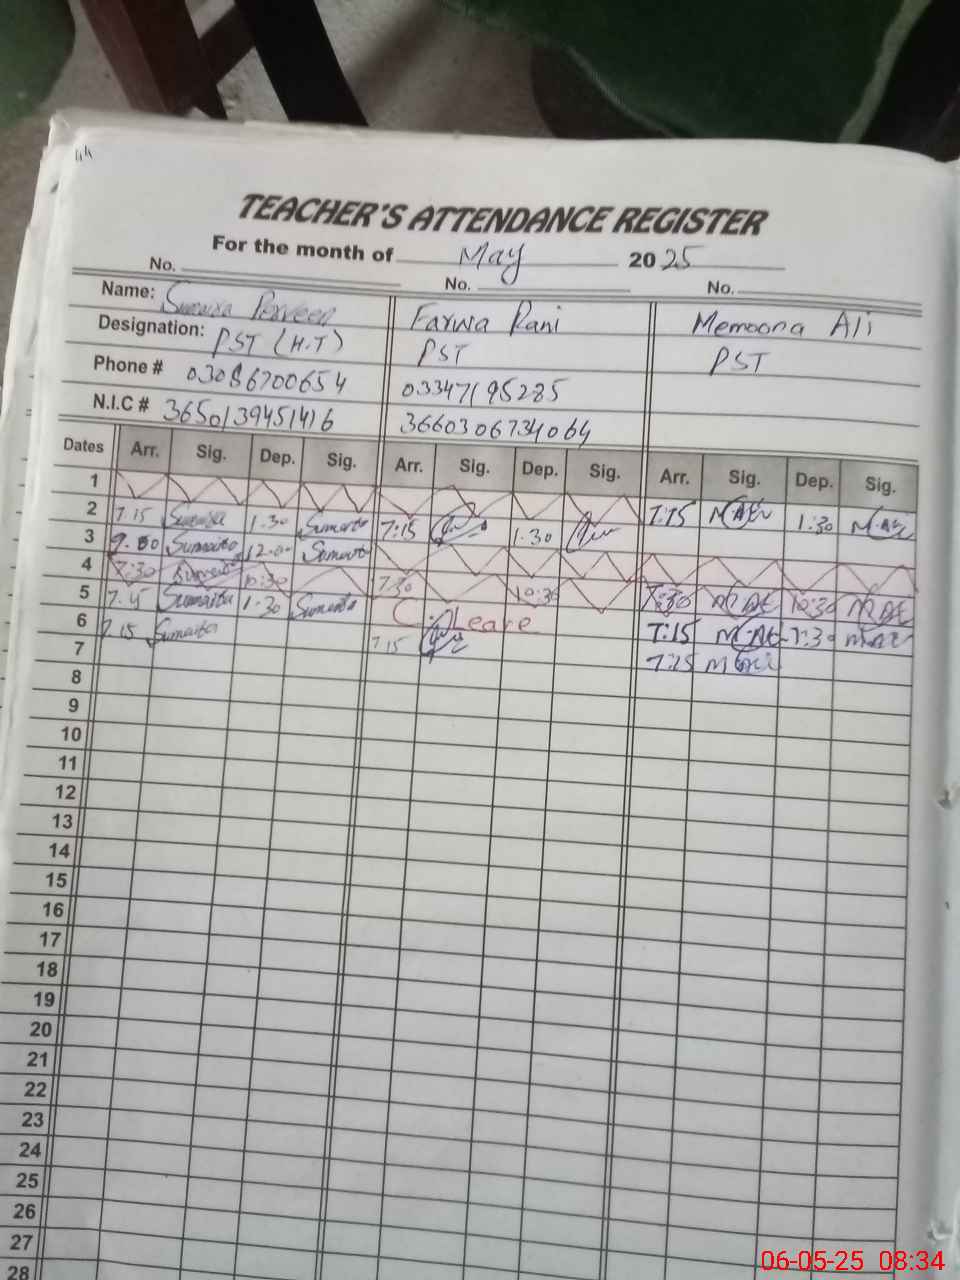 44
TEACHER'S ATTENDANCE REGISTER
For the month of May 2025
No. No. No.
Name: Sumaira Perveen Farwa Rani Memoona Ali
Designation: PST (H.T) PST PST
Phone # 03086700654 03347195285
N.I.C # 3650139451416 3660306734064
Dates Arr. Sig. Dep. Sig. Arr. Sig. Dep. Sig. Arr. Sig. Dep. Sig.
1
2 7.15 Sumaira 1.30 Sumaira 7:15 1.30 7:15 M.Ali 1:30 M.Ali
3 Sumaira 12.00 Sumaira
4 7:30 Sumaira 10:30 7:30 10:30 7:30 M.Ali 10:30 M.Ali
5 7.15 Sumaira 1.30 Sumaira C. Leave 7:15 M.Ali 1:30 M.Ali
6 7.15 Sumaira 7:15 7:15 M.Ali
7
8
9
10
11
12
13
14
15
16
17
18
19
20
21
22
23
24
25
26
27
28
06-05-25 08:34